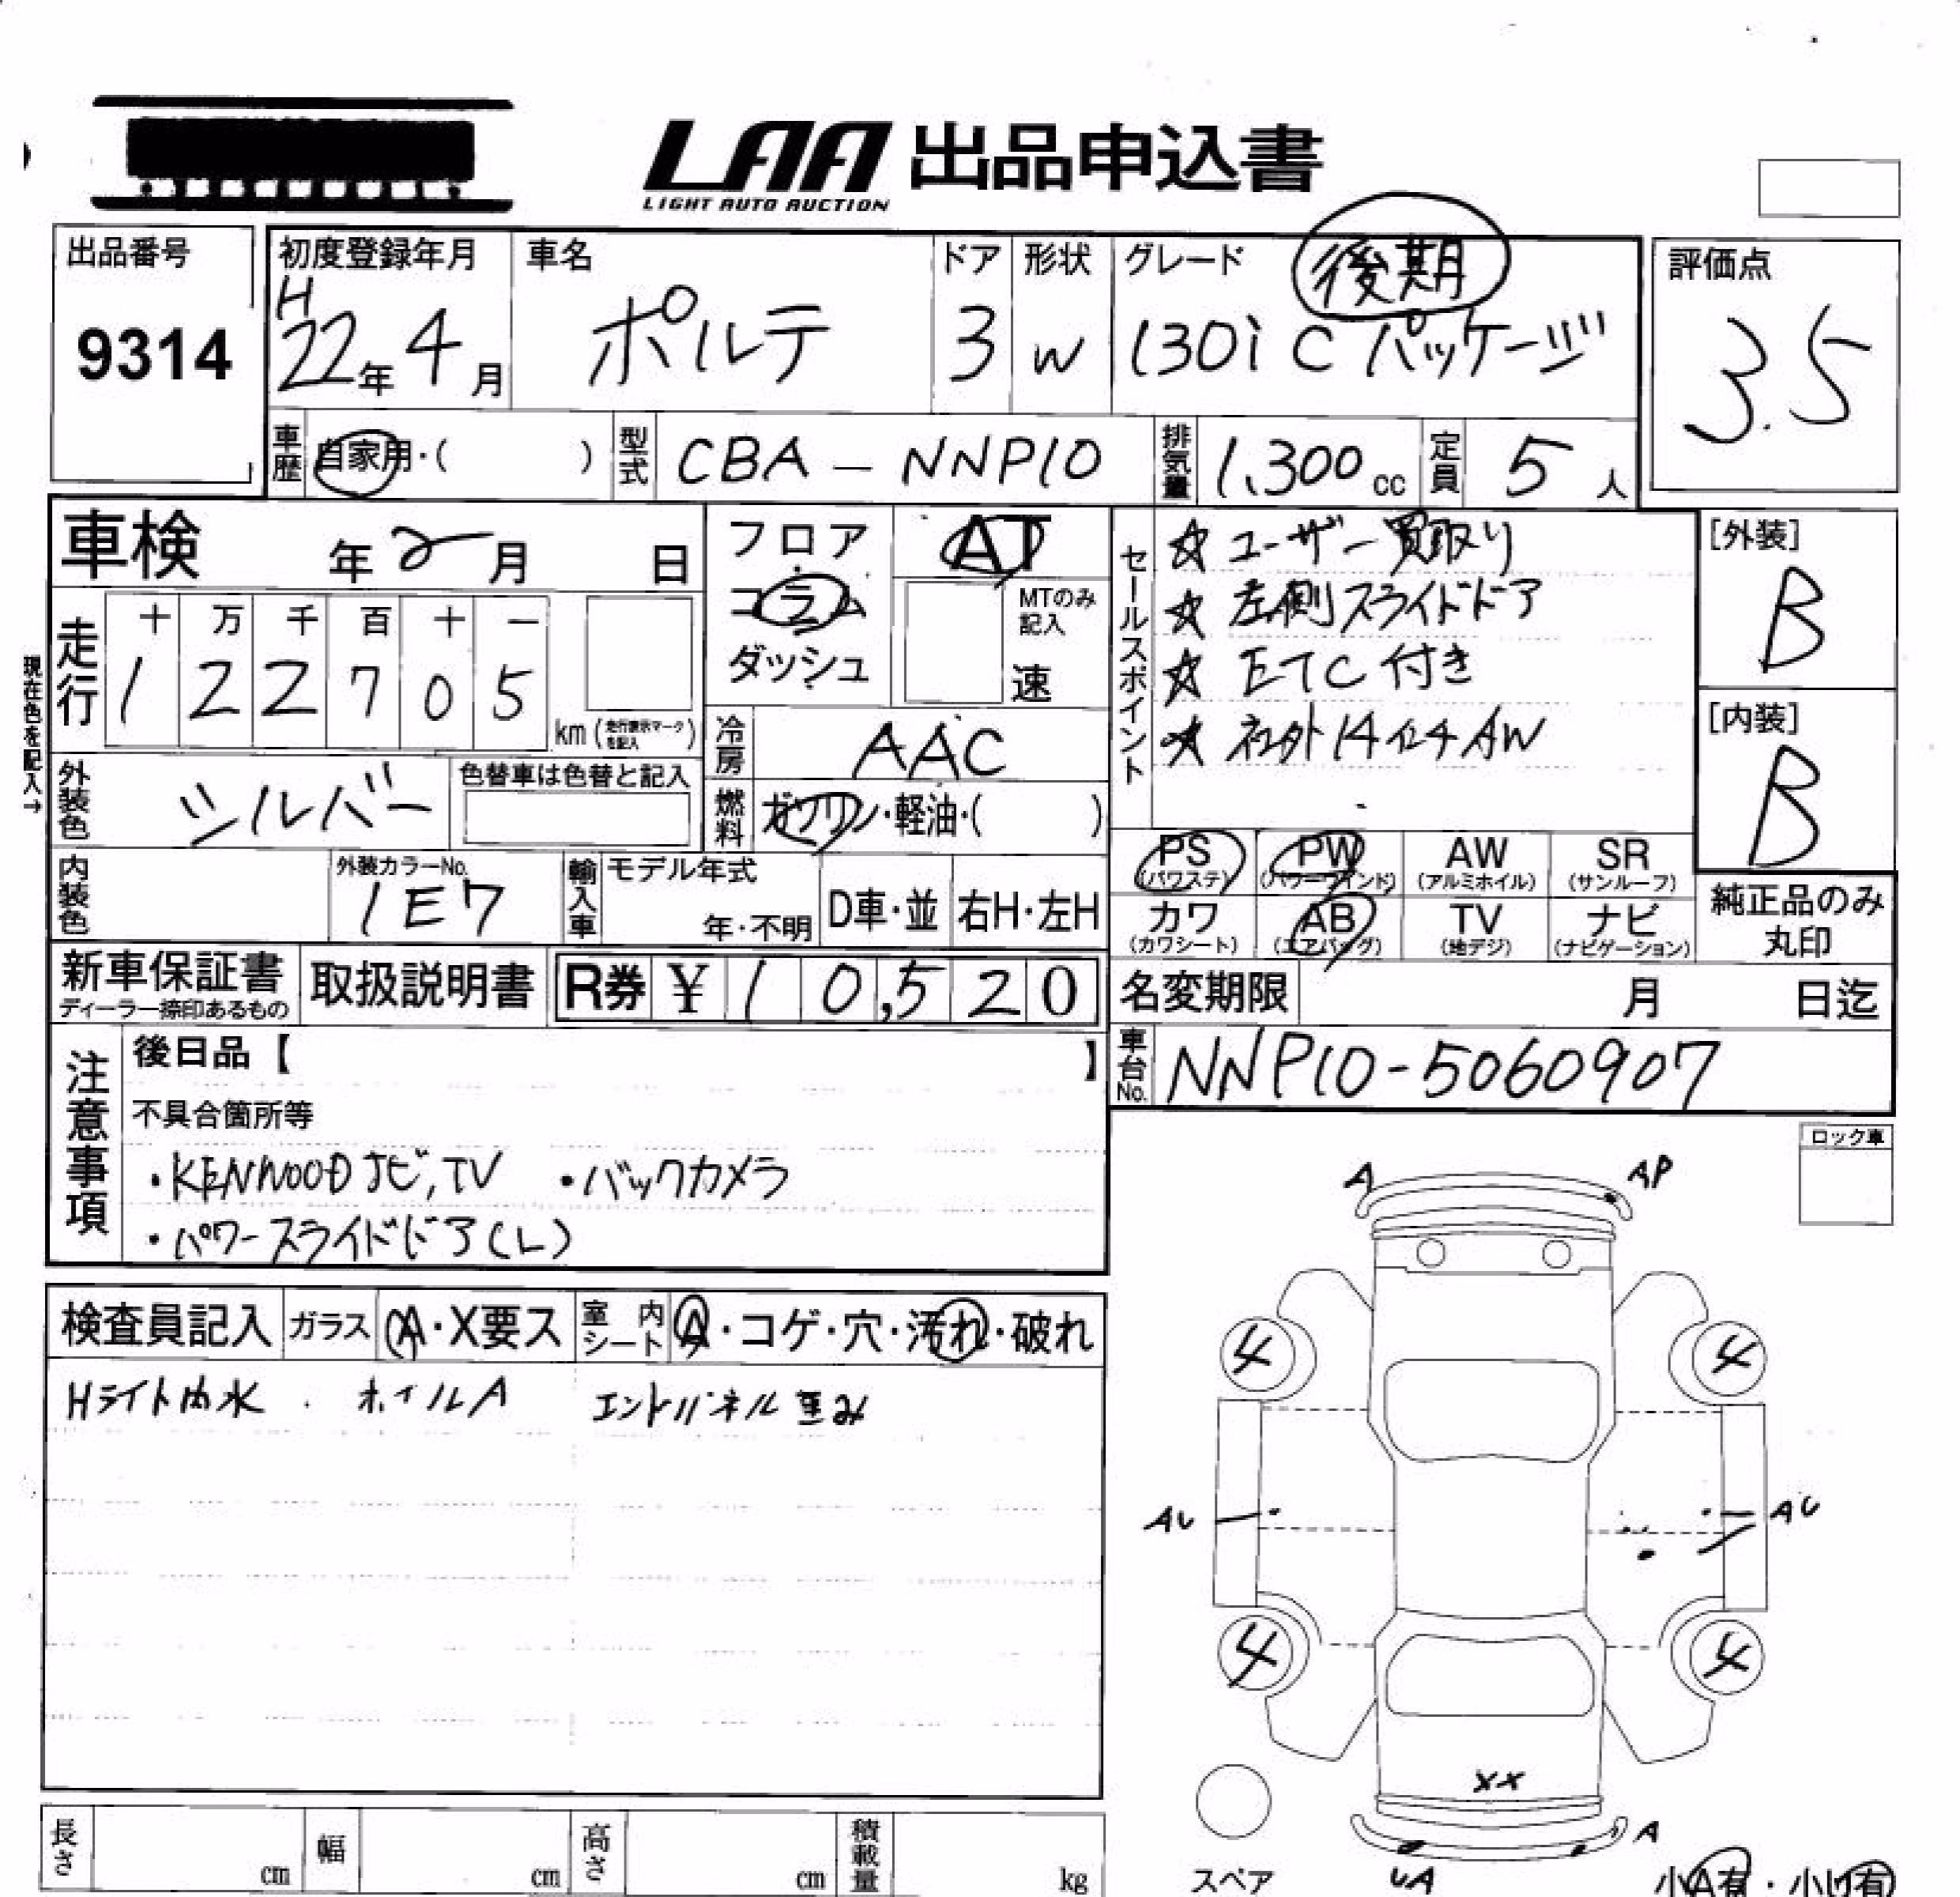 LAA 出品申込書
LIGHT AUTO AUCTION
出品番号
9314
初度登録年月
H
22年 4月
車名
ポルテ
ドア
3
形状
W
グレード
後期
130i Cパッケージ
評価点
3.5
車歴
自家用・( )
型式
CBA-NNP10
排気量
1,300cc
定員
5人
車検 年 2月 日
現在色を記入→
走行
十 万 千 百 十 一
1 2 2 7 0 5
km(走行表示マークを記入)
フロア
コラム
ダッシュ
AT
MTのみ記入
速
冷房
AAC
燃料
ガソリン・軽油・( )
外装色
シルバー
色替車は色替と記入
内装色
外装カラーNo.
1E7
輸入車
モデル年式
年・不明
D車・並
右H・左H
セールスポイント
☆ ユーザー買取り
☆ 左側スライドドア
☆ ETC付き
☆ 社外14インチAW
[外装]
B
[内装]
B
PS (パワステ)
PW (パワーウインド)
AW (アルミホイル)
SR (サンルーフ)
カワ (カワシート)
AB (エアバッグ)
TV (地デジ)
ナビ (ナビゲーション)
純正品のみ丸印
新車保証書
ディーラー捺印あるもの
取扱説明書
R券 ¥ 10,520
名変期限 月 日迄
車台No.
NNP10-5060907
注意事項
後日品【 】
不具合箇所等
・KENWOODナビ,TV ・バックカメラ
・パワースライドドア(L)
ロック車
検査員記入
ガラス
A・X要ス
室内シート
A・コゲ・穴・汚れ・破れ
Hライト内水 . ホイルA エンドパネル歪み
A
AP
4
4
AU
AU
4
4
XX
A
UA
スペア
小A有・小U有
長さ cm
幅 cm
高さ cm
積載量 kg